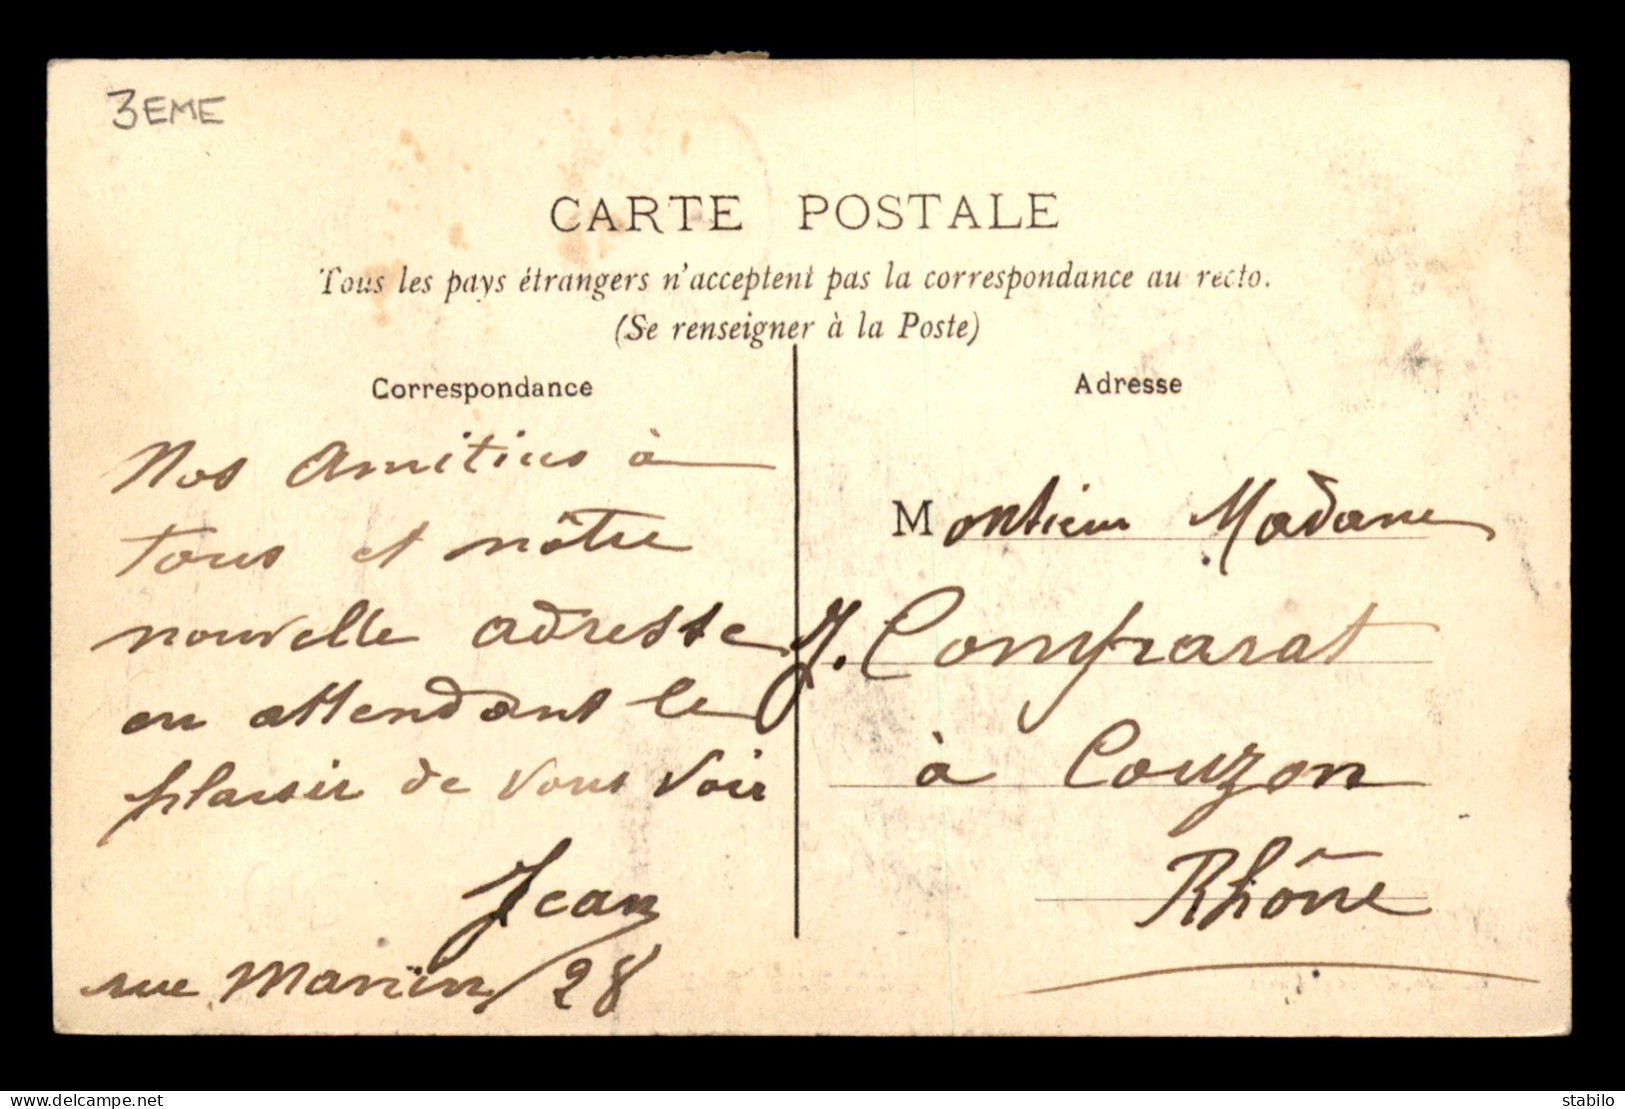 3EME
CARTE POSTALE
Tous les pays étrangers n'acceptent pas la correspondance au recto.
(Se renseigner à la Poste)
Correspondance
Nos Amitiés à
tous et nôtre
nouvelle adresse
en attendant le
plaisir de vous voir
Jean
rue 28
Adresse
Monsieur Madame
J. Comparat
à Couzon
Rhône
delcampe.net
stabilo